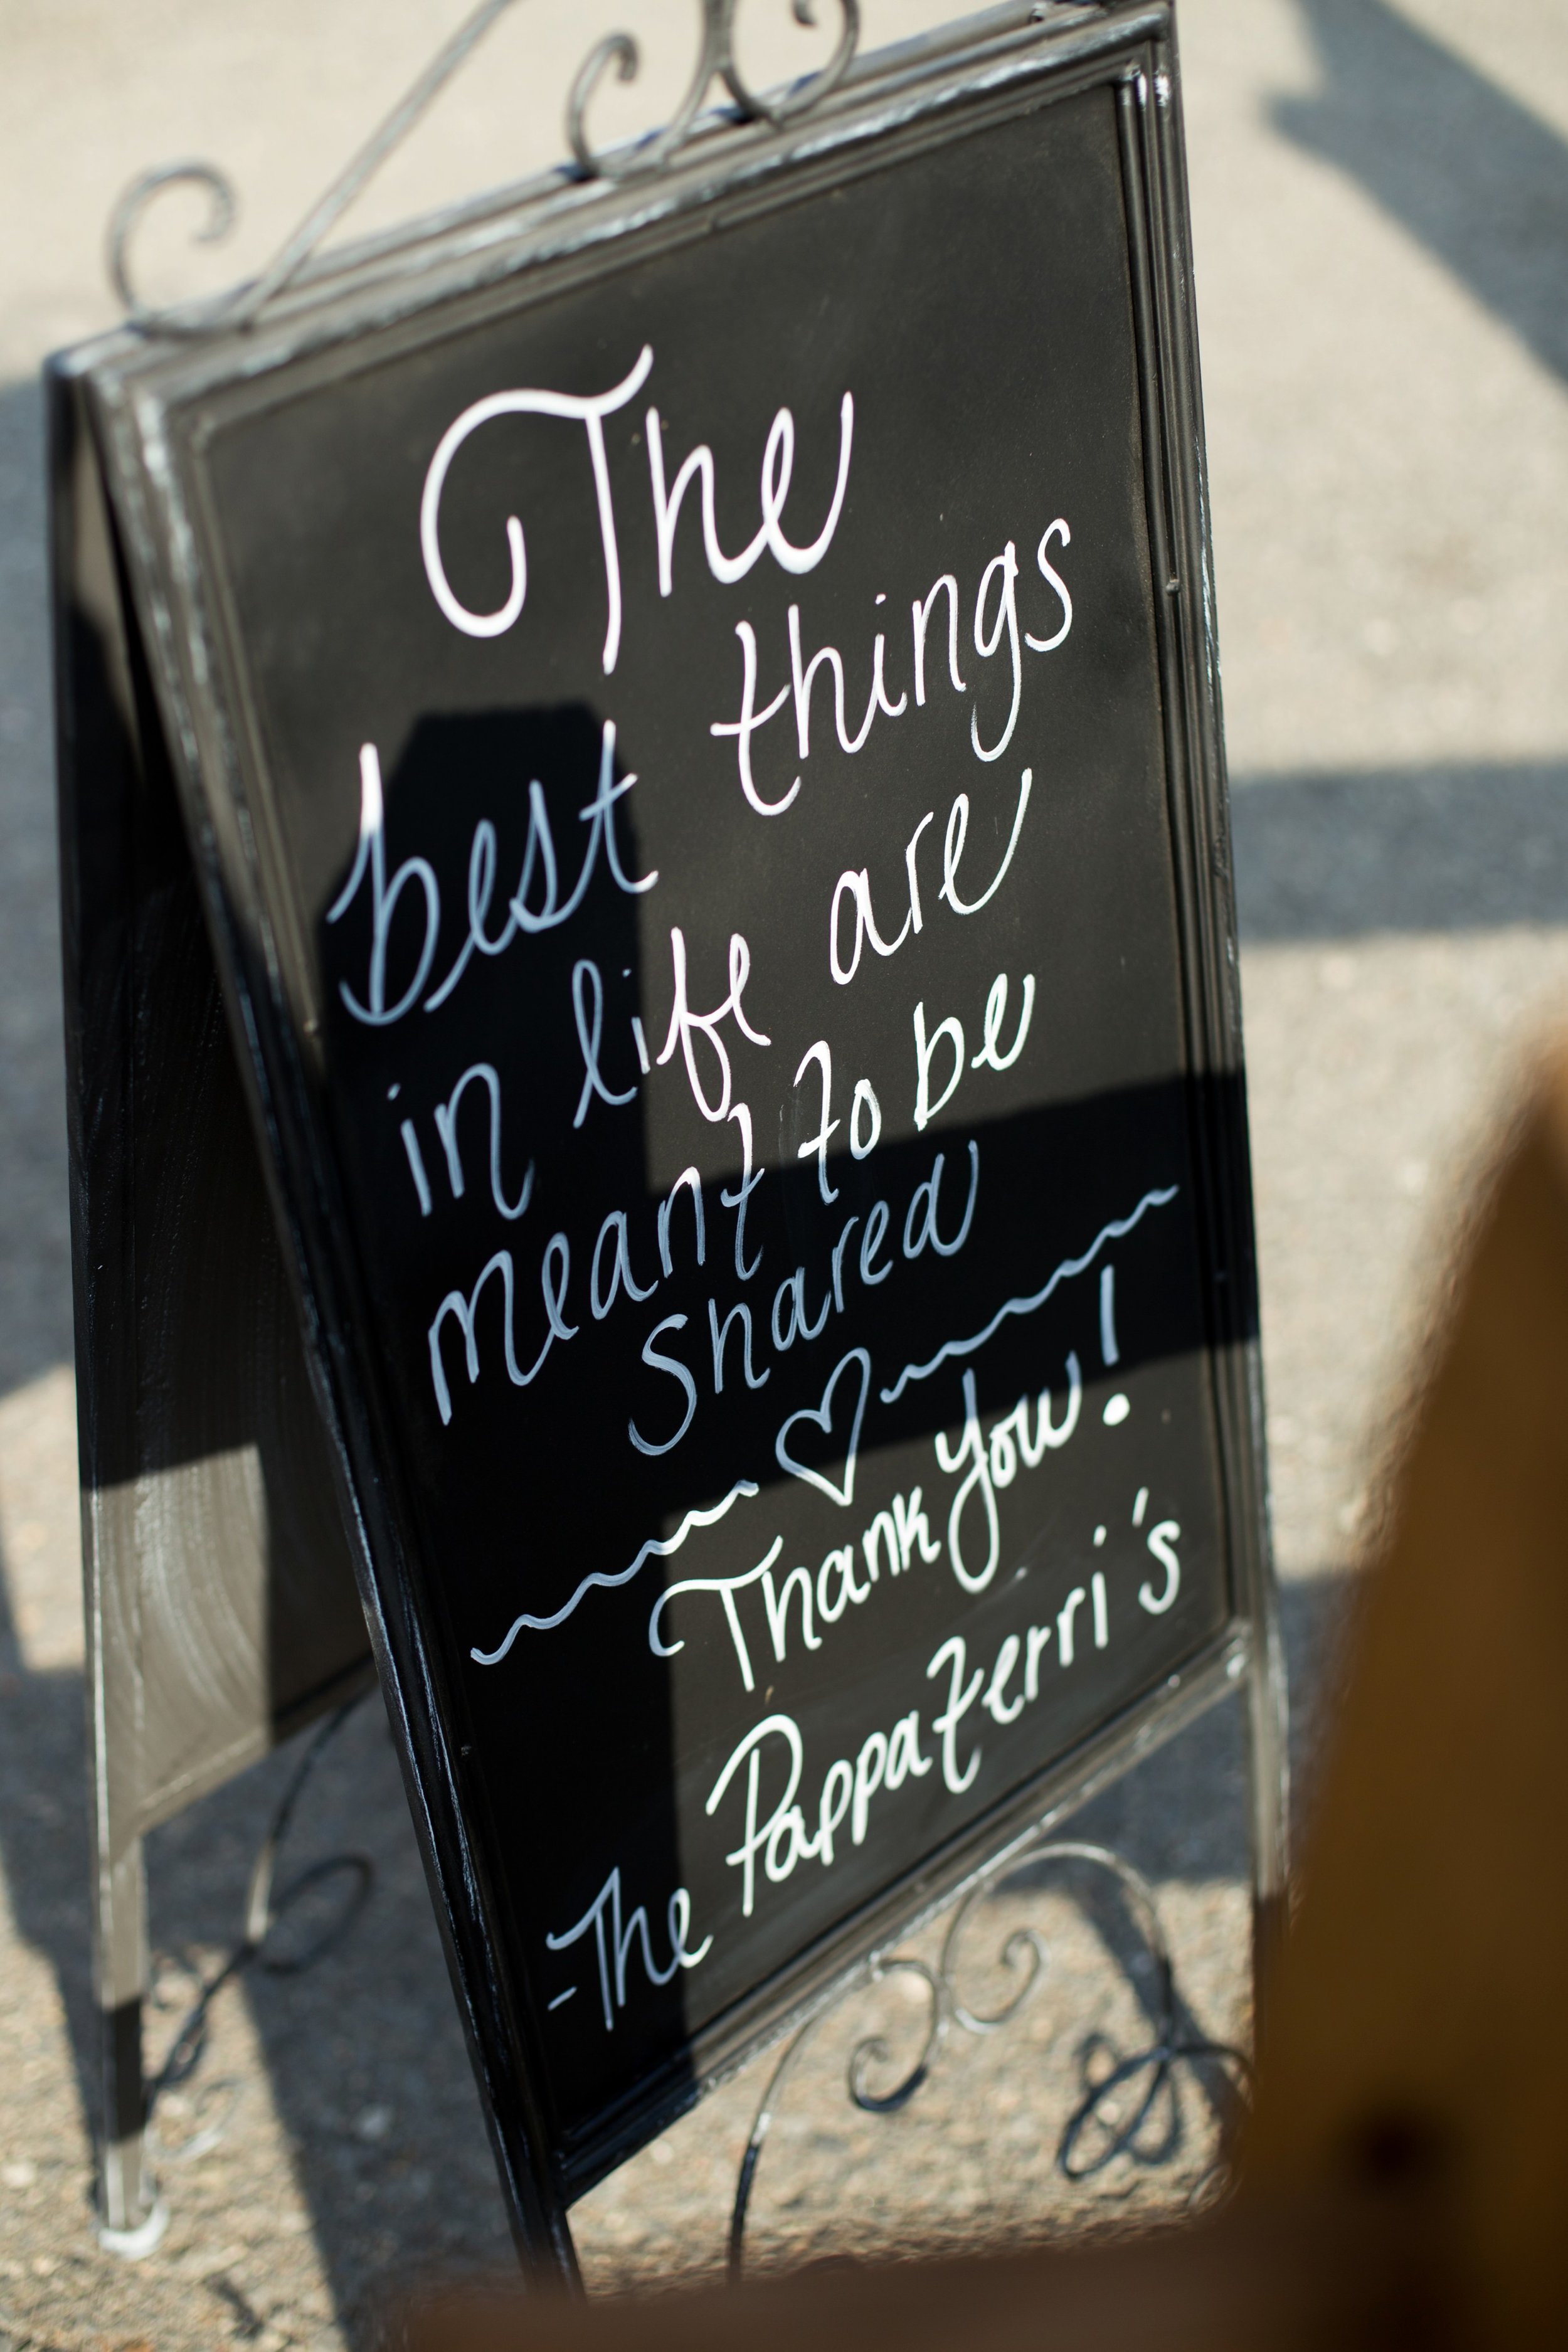 The
best things
in life are
meant to be
shared
Thank you!
-The Pappaterri's